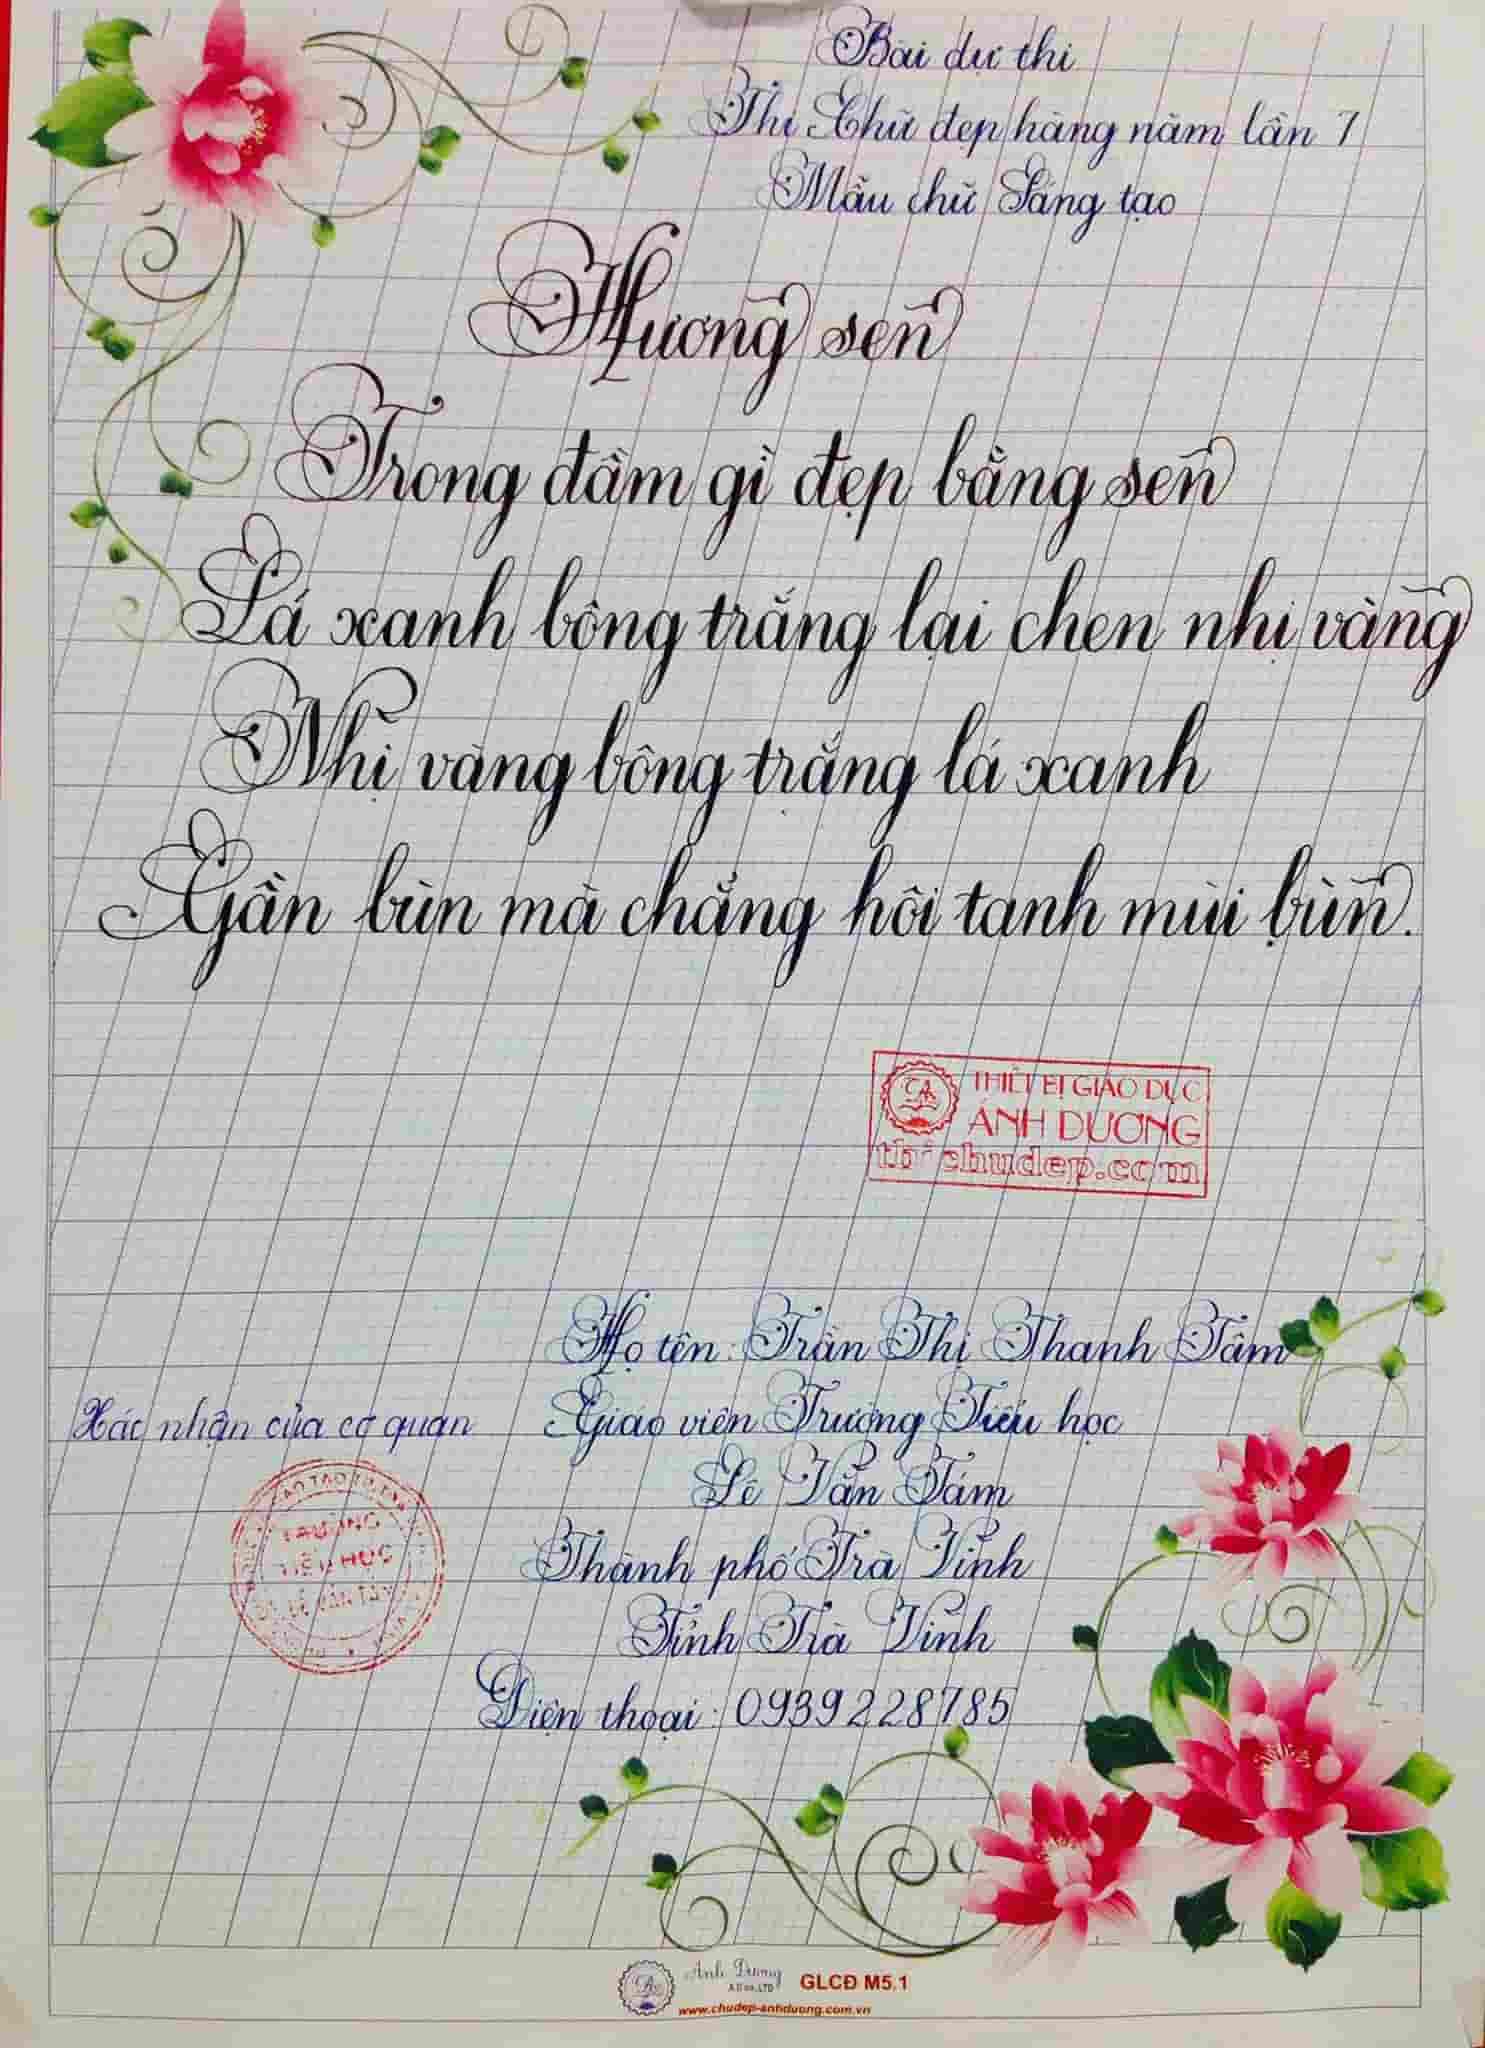 Bài dự thi
Thi Chữ đẹp hàng năm lần 7
Mẫu chữ Sáng tạo
Hương sen
Trong đầm gì đẹp bằng sen
Lá xanh bông trắng lại chen nhị vàng
Nhị vàng bông trắng lá xanh
Gần bùn mà chẳng hôi tanh mùi bùn.
THIẾT BỊ GIÁO DỤC
ÁNH DƯƠNG
chudep.com
Họ tên: Trần Thị Thanh Tâm
Xác nhận của cơ quan
Giáo viên Trường Tiểu học
Lê Văn Tám
Thành phố Trà Vinh
Tỉnh Trà Vinh
Điện thoại: 0939228785
TRƯỜNG
TIỂU HỌC
LÊ VĂN TÁM
Ánh Dương
GLCĐ M5.1
www.chudep-anhduong.com.vn